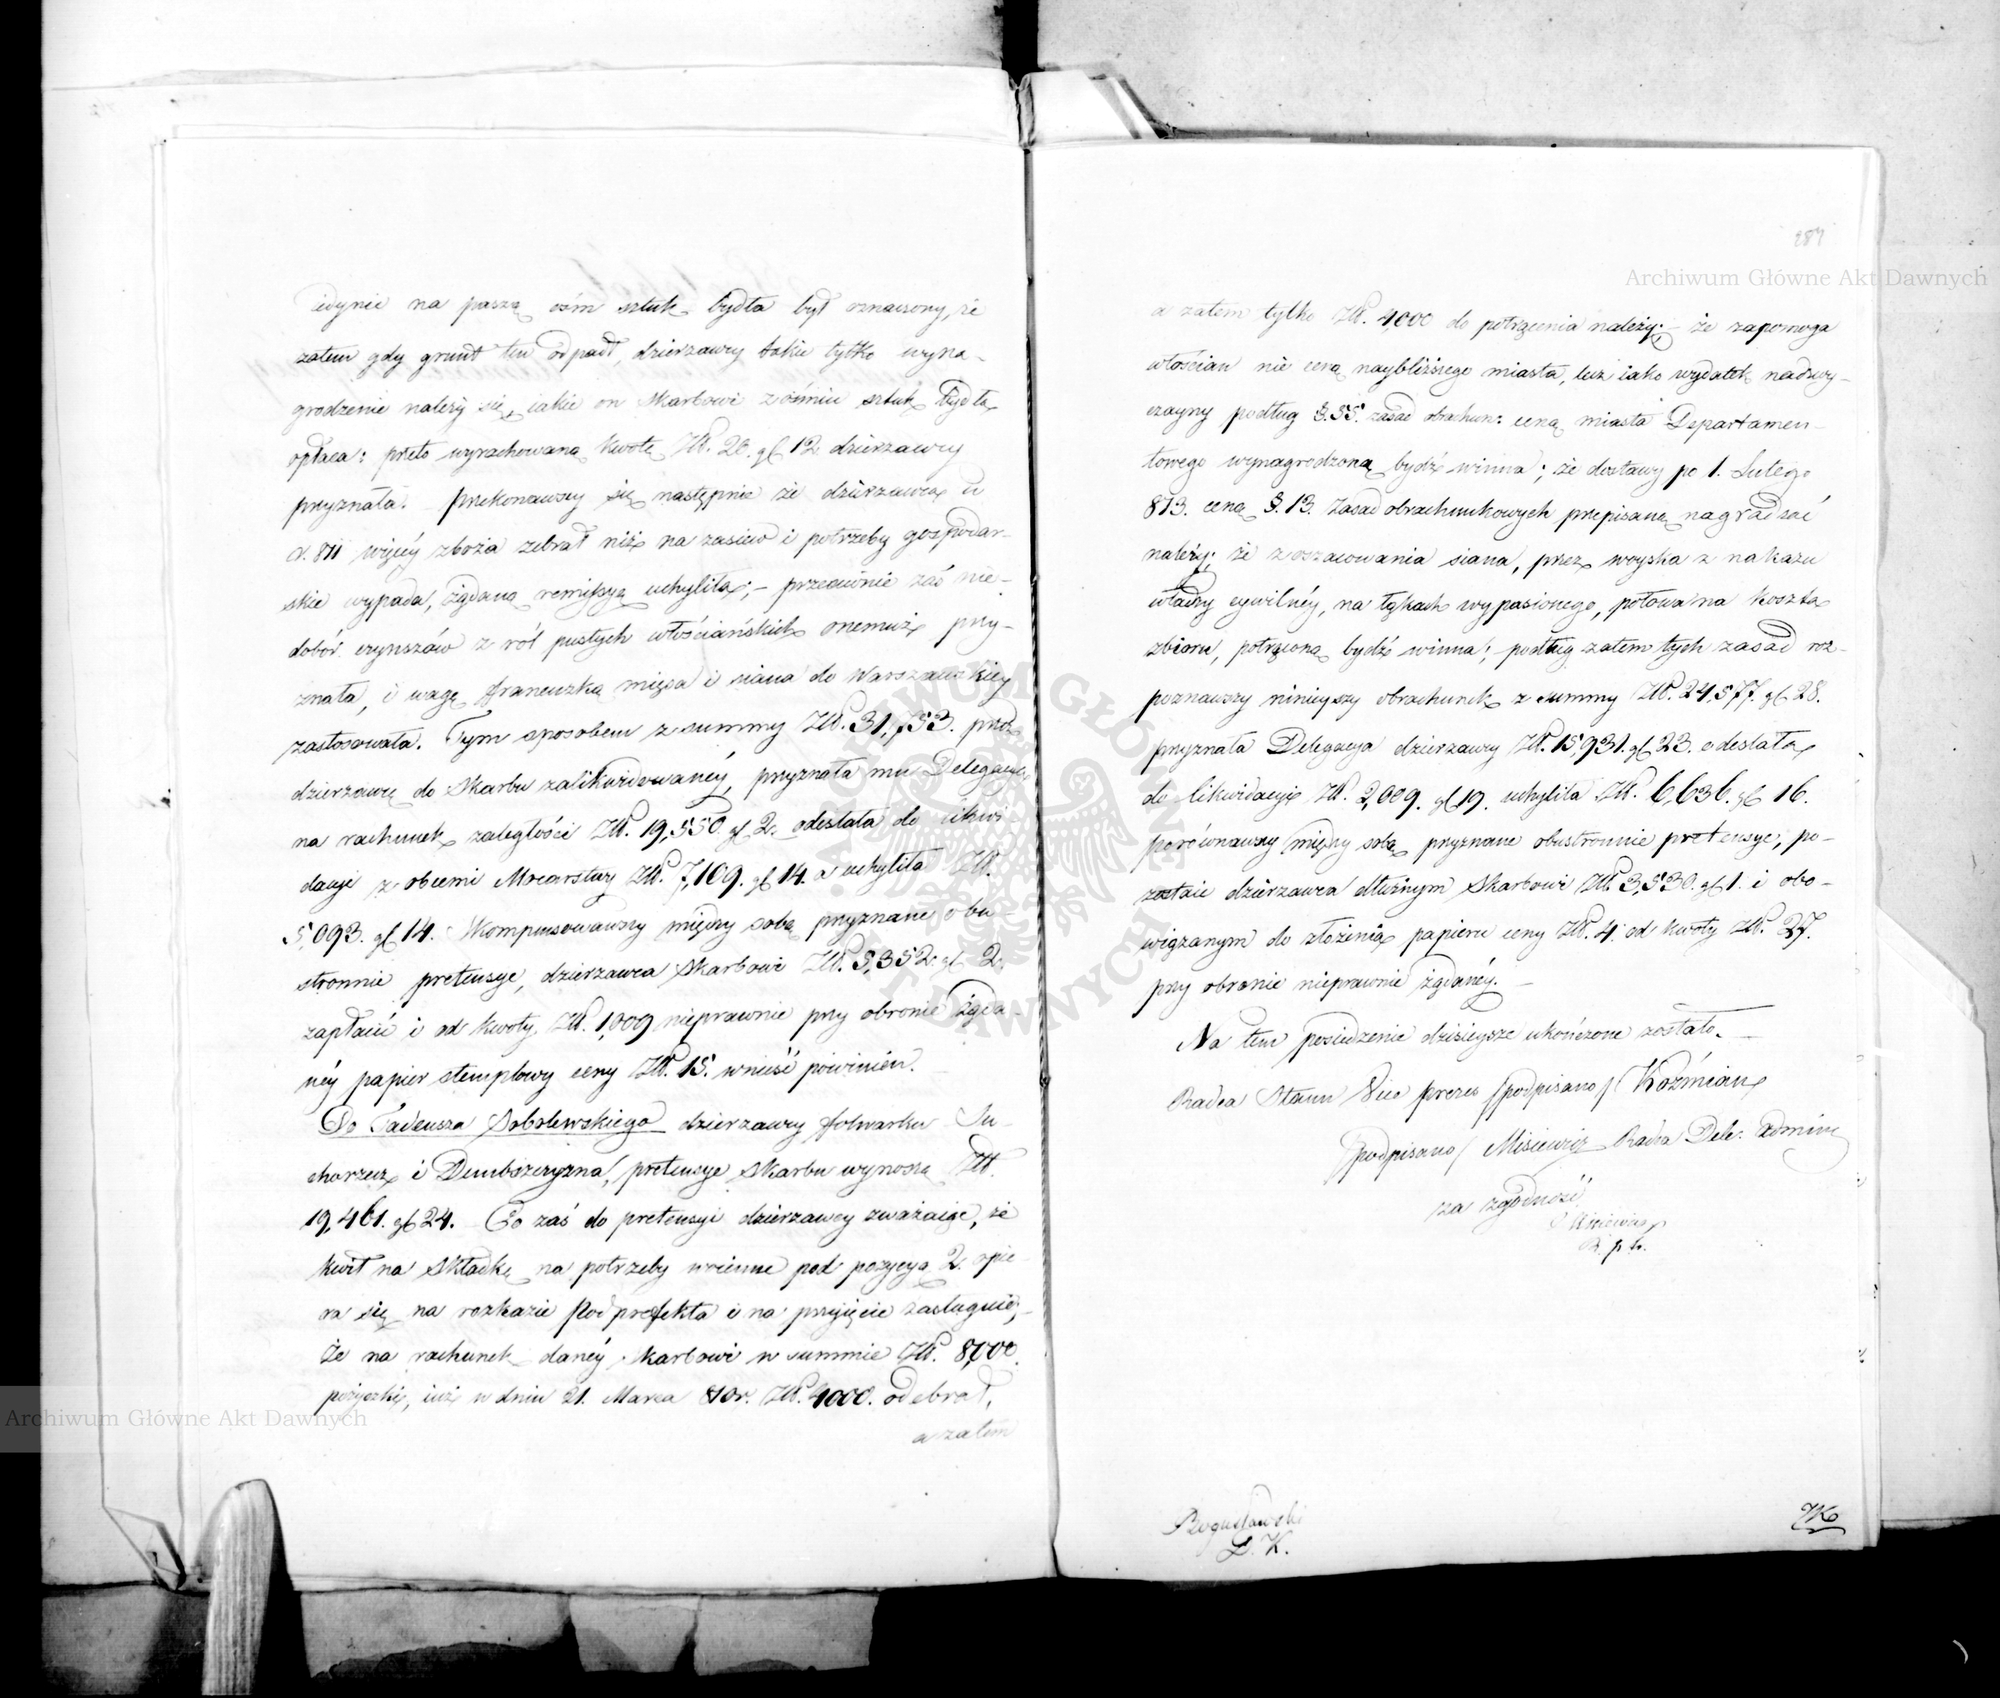 iedynie na paszą ośm sztuk bydła był oznaczony, że
zatem gdy grunt ten odpadł, dzierzawcy takie tylko wyna-
grodzenie należy się, iakie on Skarbowi z ośmiu sztuk bydła
opłaca: przeto wyrachowaną kwotę Złł. 26. gł 12 dzierzawcy
przyznała. Przekonawszy się następnie że dzierzawca w
r. 811 więcéy zboża zebrał niż na zasiew i potrzeby gospodar-
skie wypada, żądaną remissyą uchyliła; – przeciwnie zaś nie-
dobór czynszów z ról pustych włościańskich onemuż przy-
znała, i wagę francuzką mięsa i siana do Warszawskiey
zastosowała. Tym sposobem z summy Złł. 31,753. przez
dzierzawcę do Skarbu zalikwidowanéy, przyznała mu Delegacya
na rachunek zaległości Złł. 19,550 gł 2. odesłała do likwi-
dacyi z obcemi Mocarstwy Złł. 7,109. gł 14. a uchyliła Złł.
5,093. gł 14. Skompensowawszy między sobą przyznane obu-
stronnie pretensye, dzierzawca Skarbowi Złł. 5,352. gł 2.
zapłacić i od kwoty Złł. 1,009 nieprawnie przy obronie żąda-
néy papier stemplowy ceny Złł. 15. wnieść powinien.
Do Tadeusza Sobolewskiego dzierzawcy folwarku Su-
chorzecz i Dembszczyzna, pretensye Skarbu wynoszą Złł.
19,461. gł 24. Co zaś do pretensyi dzierzawcy zważaiąc, że
kwit na składkę na potrzeby woienne pod pozycyą 2. opie-
ra się na rozkazie Podprefekta i na przyięcie zasługuie; –
Że na rachunek danéy Skarbowi w summie Złł. 8,000.
pożyczki, iuż w dniu 21. Marca 810r. Złł. 4000. odebrał,
a zatem
287
a zatem tylko Złł. 4000 do potrącenia należy; – że zapomoga
włościan nie ceną naybliższego miasta, lecz iako wydatek nadzwy-
czayny podług §. 55. zasad obrachun: ceną miasta Departamen-
towego wynagrodzoną bydź winna; że dostawy po 1. Lutego
813. ceną §. 13. Zasad obrachunkowych przepisaną nagradzać
należy; że z oszacowania siana, przez woyska z nakazu
władzy cywilnéy, na łąkach wypasionego, połowa na koszta
zbioru, potrąconą bydź winna; podług zatem tych zasad roz-
poznawszy ninieyszy obrachunek z summy Złł. 24,577. gł 28.
przyznała Delegacya dzierzawcy Złł. 15,931. gł 23. odesłała
do likwidacyi Złł. 2,009. gł 19. uchyliła Złł. 6,636. gł 16.
porównawszy między sobą przyznane obustronnie pretensye, po-
zostaie dzierzawca dłużnym Skarbowi Złł. 3,530. gł 1. i obo-
wiązanym do złożenia papieru ceny Złł. 4. od kwoty Złł. 27.
przy obronie nieprawnie żądanéy. –
Na tem posiedzenie dzisieysze ukończone zostało. –
Radca Stanu Vice Prezes /podpisano/ Koźmian
/podpisano/ Misiewicz Radca Dele. Admin
za zgodność
Misiewicz
R. p. D.
Bogusławski
S. K.
Archiwum Główne Akt Dawnych
Archiwum Główne Akt Dawnych
ARCHIWUM GŁÓWNE AKT DAWNYCH